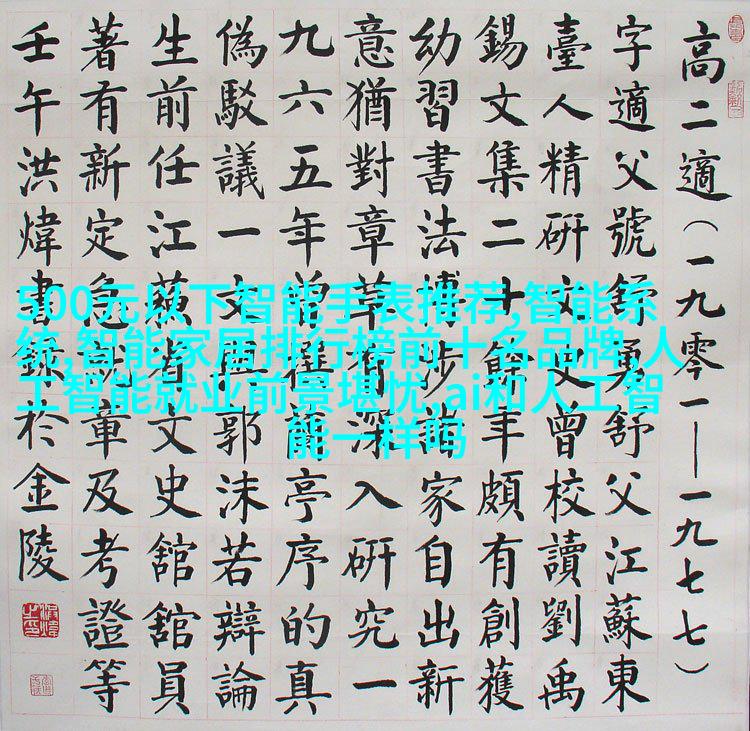 高二適（一九零一——一九七七）
字適父號舒勇舒父江蘇東
臺人精研文史曾校讀劉禹
錫文集二十餘年頗有創獲
幼習書法博涉諸家自出新
意猶對章草有深入研究一
九六五年曾撰蘭亭序的真
偽駁議一文與郭沫若辯論
生前任江蘇省文史舘舘員
著有新定急就章及考證等
壬午洪煒書錄於金陵
500元以下智能手表推荐,智能系
统,智能家居排行榜前十名品牌,人
工智能就业前景堪忧,ai和人工智
能一样吗